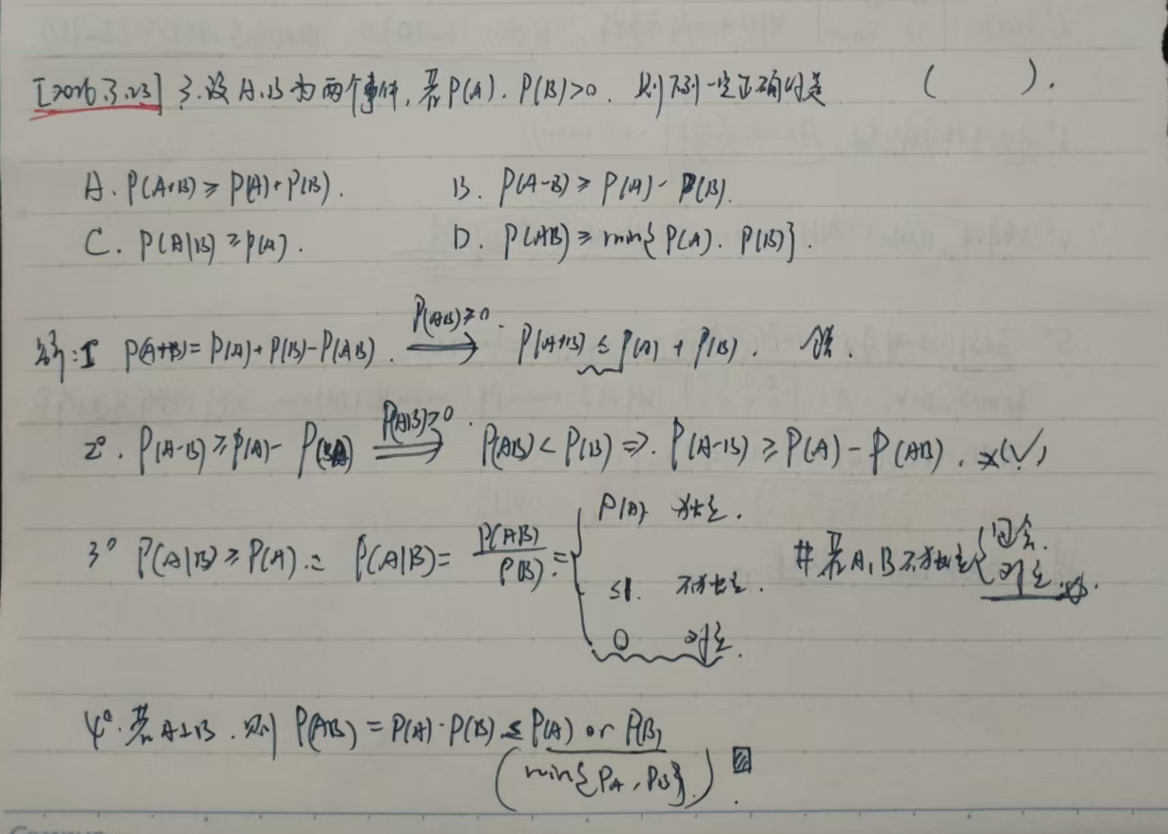 [2026.3.23] 3.设A.B为两个事件,若P(A).P(B)>0.则下列一定正确的是 ( ).
A. P(A+B)≥P(A)+P(B). B. P(A-B)≥P(A)-P(B).
C. P(A|B)≥P(A). D. P(AB)≥min{P(A).P(B)}.
解:1° P(A+B)=P(A)+P(B)-P(AB). P(AB)≥0 ⟹ P(A+B)≤P(A)+P(B). 错.
2°. P(A-B)≥P(A)- P(B) P(AB)≥0 ⟹ P(AB)<P(B)⇒. P(A-B)≥P(A)-P(AB). ×(√)
3° P(A|B)≥P(A). P(A|B)= P(AB)/P(B) = { P(A) 独立.
≤1. 不独立.
0 对立.
#若A,B不独立{包含.
对立.
4°.若A⊥B.则P(AB)=P(A)·P(B)≤P(A) or P(B)
(min{PA,PB}).